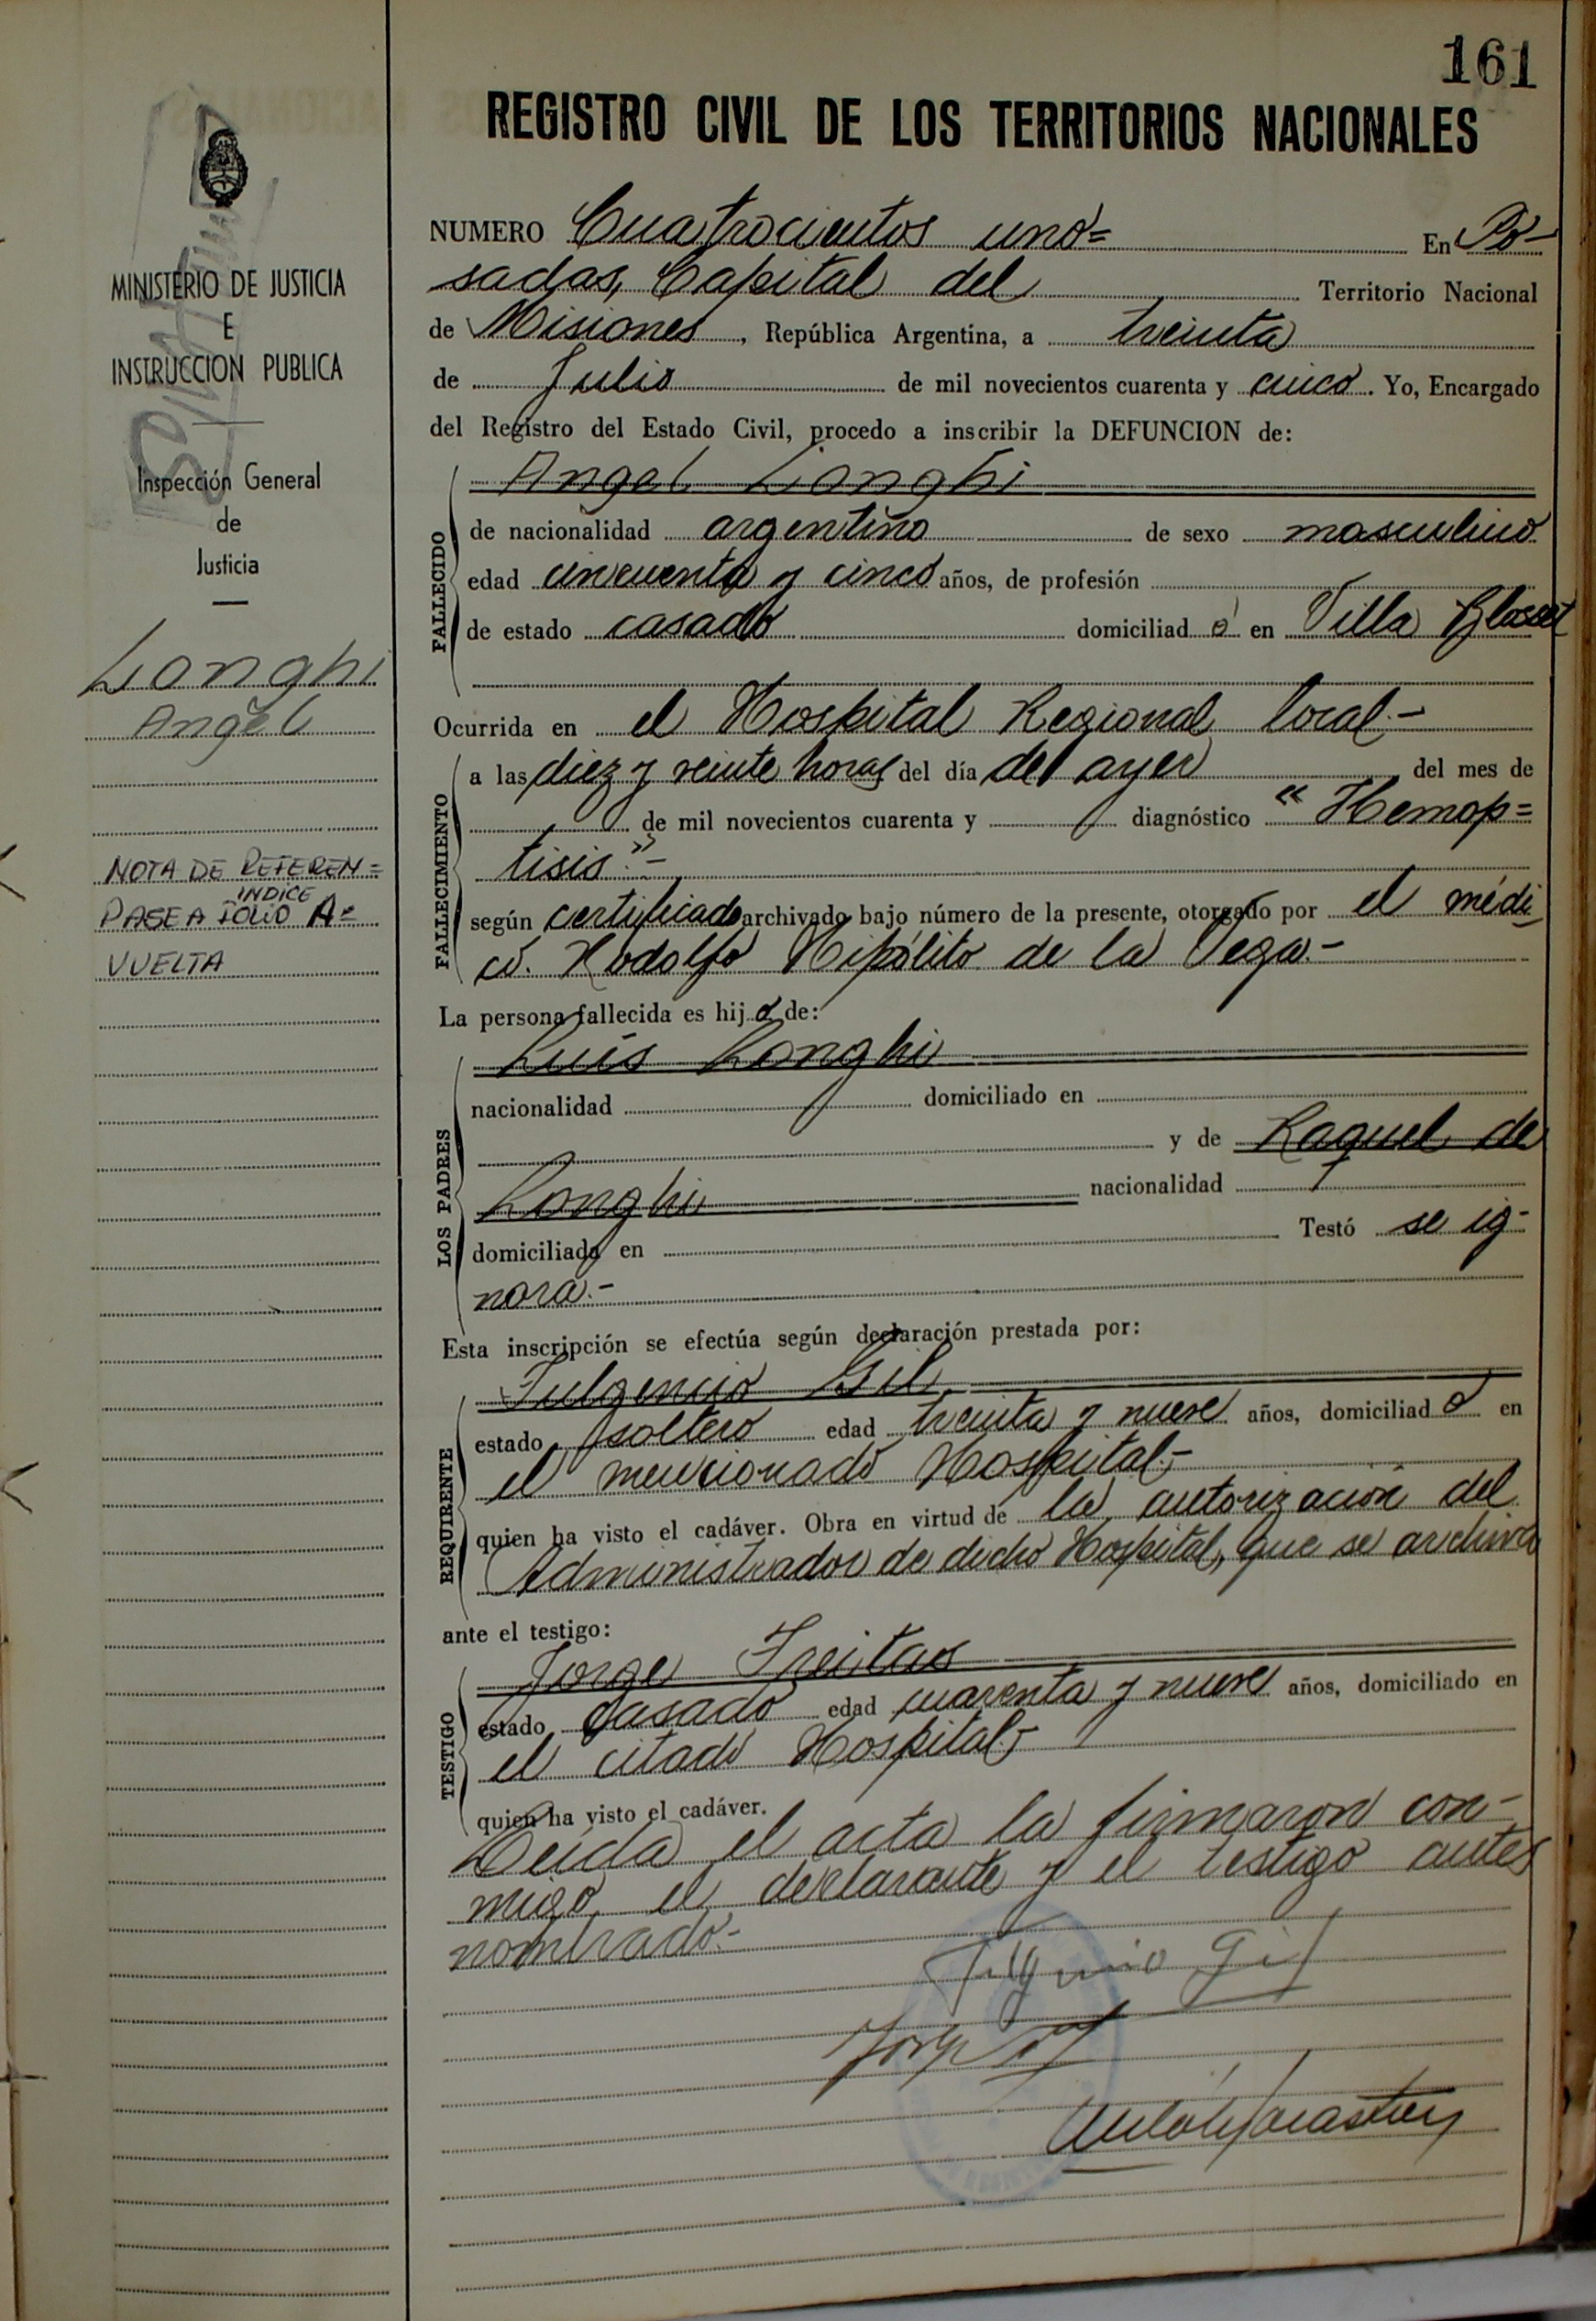 161
REGISTRO CIVIL DE LOS TERRITORIOS NACIONALES
MINISTERIO DE JUSTICIA
E
INSTRUCCION PUBLICA
Inspección General
de
Justicia
Longhi
Angel
NOTA DE REFEREN=
INDICE
PASE A FOLIO A=
VUELTA
NUMERO Cuatrocientos uno= En Po-
sadas, Capital del Territorio Nacional
de Misiones, República Argentina, a treinta
de Julio de mil novecientos cuarenta y cinco. Yo, Encargado
del Registro del Estado Civil, procedo a inscribir la DEFUNCION de:
FALLECIDO
Angel Longhi
de nacionalidad argentino de sexo masculino
edad cincuenta y cinco años, de profesión
de estado casado domiciliad o en Villa
Ocurrida en el Hospital Regional local.-
FALLECIMIENTO
a las diez y veinte horas del día de ayer del mes de
de mil novecientos cuarenta y diagnóstico "Hemop=
tisis".-
según certificado archivado bajo número de la presente, otorgado por el médi
co. Rodolfo Hipólito de la Vega.-
La persona fallecida es hij o de:
LOS PADRES
Luis Longhi
nacionalidad domiciliado en
y de Raquel de
Longhi nacionalidad
domiciliada en Testó se ig-
nora.-
Esta inscripción se efectúa según declaración prestada por:
REQUIRENTE
Fulgencio Gil
estado soltero edad treinta y nueve años, domiciliad o en
el mencionado Hospital-
quien ha visto el cadáver. Obra en virtud de la autorización del
Administrador de dicho Hospital, que se archiva
ante el testigo:
TESTIGO
Jorge Freitas
estado casado edad cuarenta y nueve años, domiciliado en
el citado Hospital-
quien ha visto el cadáver.
Leida el acta la firmaron con-
migo, el declarante y el testigo antes
nombrado.-
Gil
Jorge